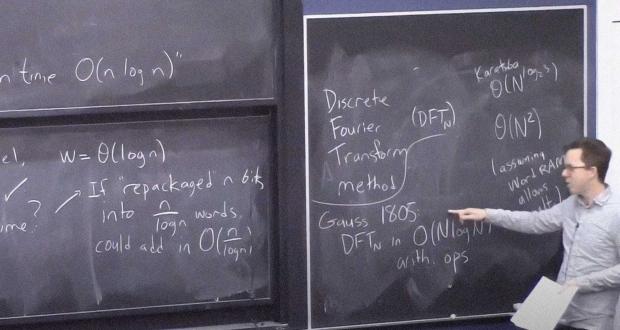 n time O(n log n)"
el, w = Θ(log n)
If "repackaged" n bits
into n/log n words,
ime? could add in O(n/log n)
Discrete
Fourier (DFT_N)
Transform
method
Gauss 1805:
DFT_N in O(N log N)
arith. ops
Karatsuba
Θ(N^{log_2 3})
Θ(N^2)
(assuming
Word RAM
allows